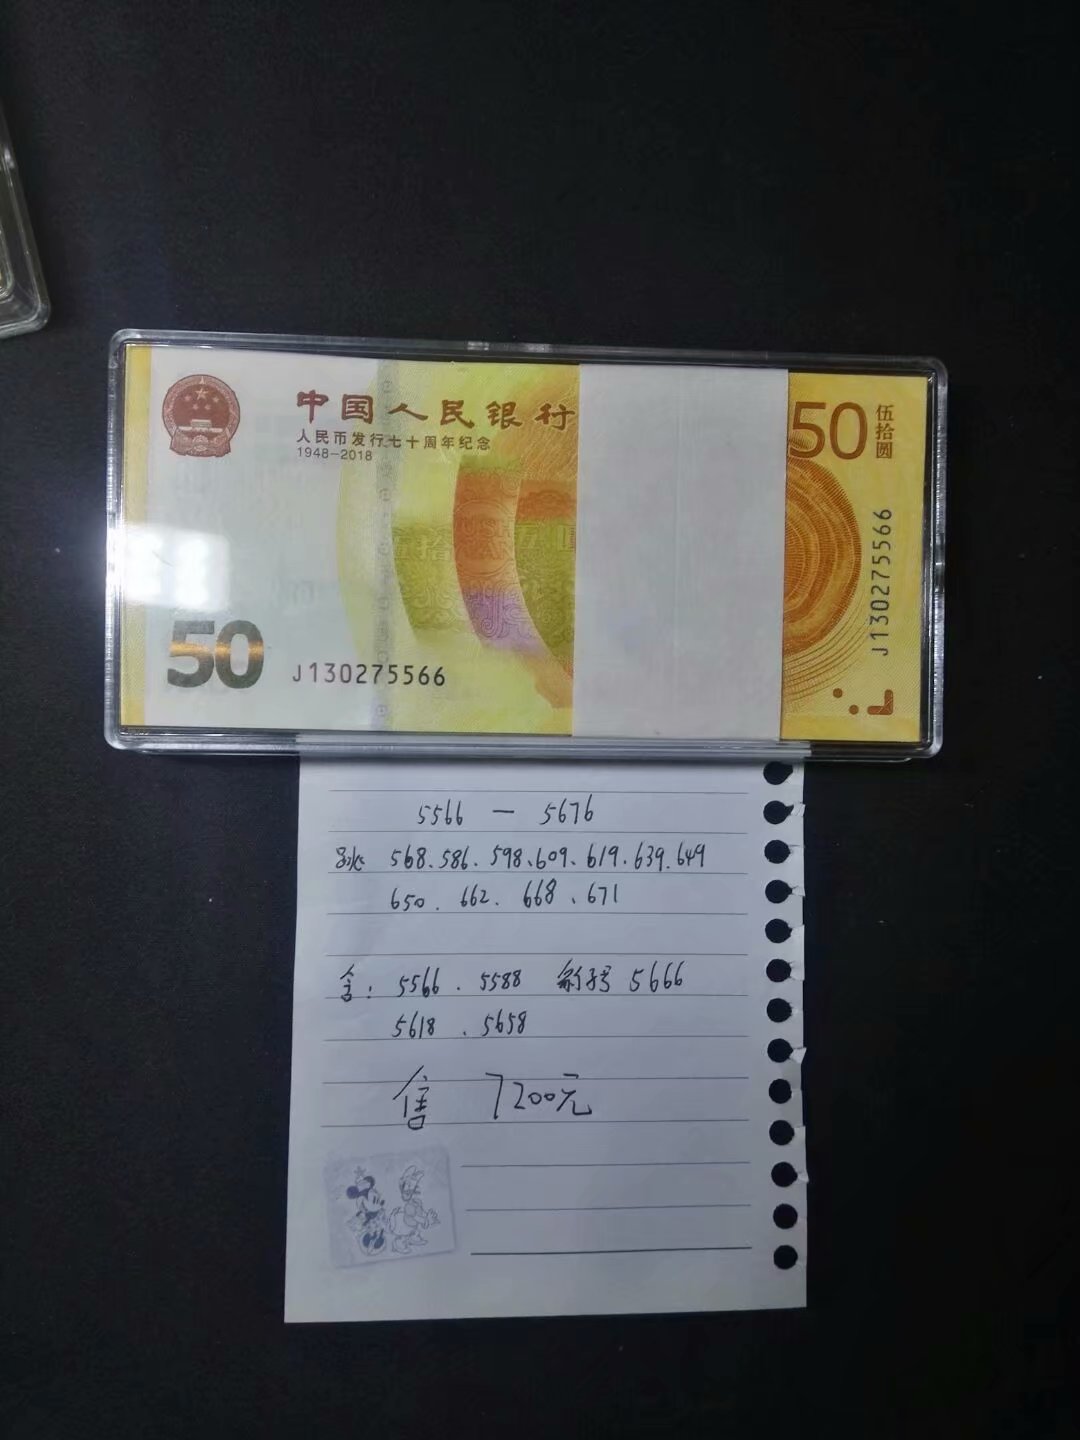 中国人民银行
人民币发行七十周年纪念
1948-2018
50
伍拾圆
J130275566
50
J130275566
5566 — 5676
跳 568、586、598、609、619、639、649
650、662、668、671
含：5566、5588 豹子号 5666
5618、5658
售 7200元